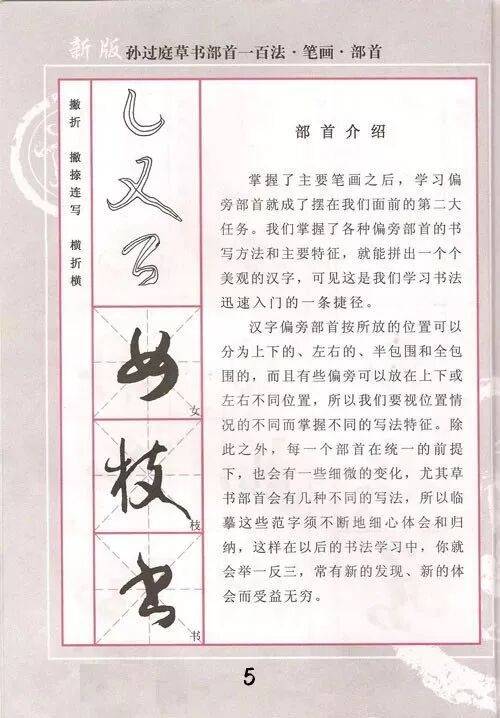 新版 孙过庭草书部首一百法·笔画·部首
撇折 撇捺连写 横折横
女
枝
书
部首介绍
掌握了主要笔画之后，学习偏
旁部首就成了摆在我们面前的第二大
任务。我们掌握了各种偏旁部首的书
写方法和主要特征，就能拼出一个个
美观的汉字，可见这是我们学习书法
迅速入门的一条捷径。
汉字偏旁部首按所放的位置可以
分为上下的、左右的、半包围和全包
围的，而且有些偏旁可以放在上下或
左右不同位置，所以我们要视位置情
况的不同而掌握不同的写法特征。除
此之外，每一个部首在统一的前提
下，也会有一些细微的变化，尤其草
书部首会有几种不同的写法，所以临
摹这些范字须不断地细心体会和归
纳，这样在以后的书法学习中，你就
会举一反三，常有新的发现、新的体
会而受益无穷。
5